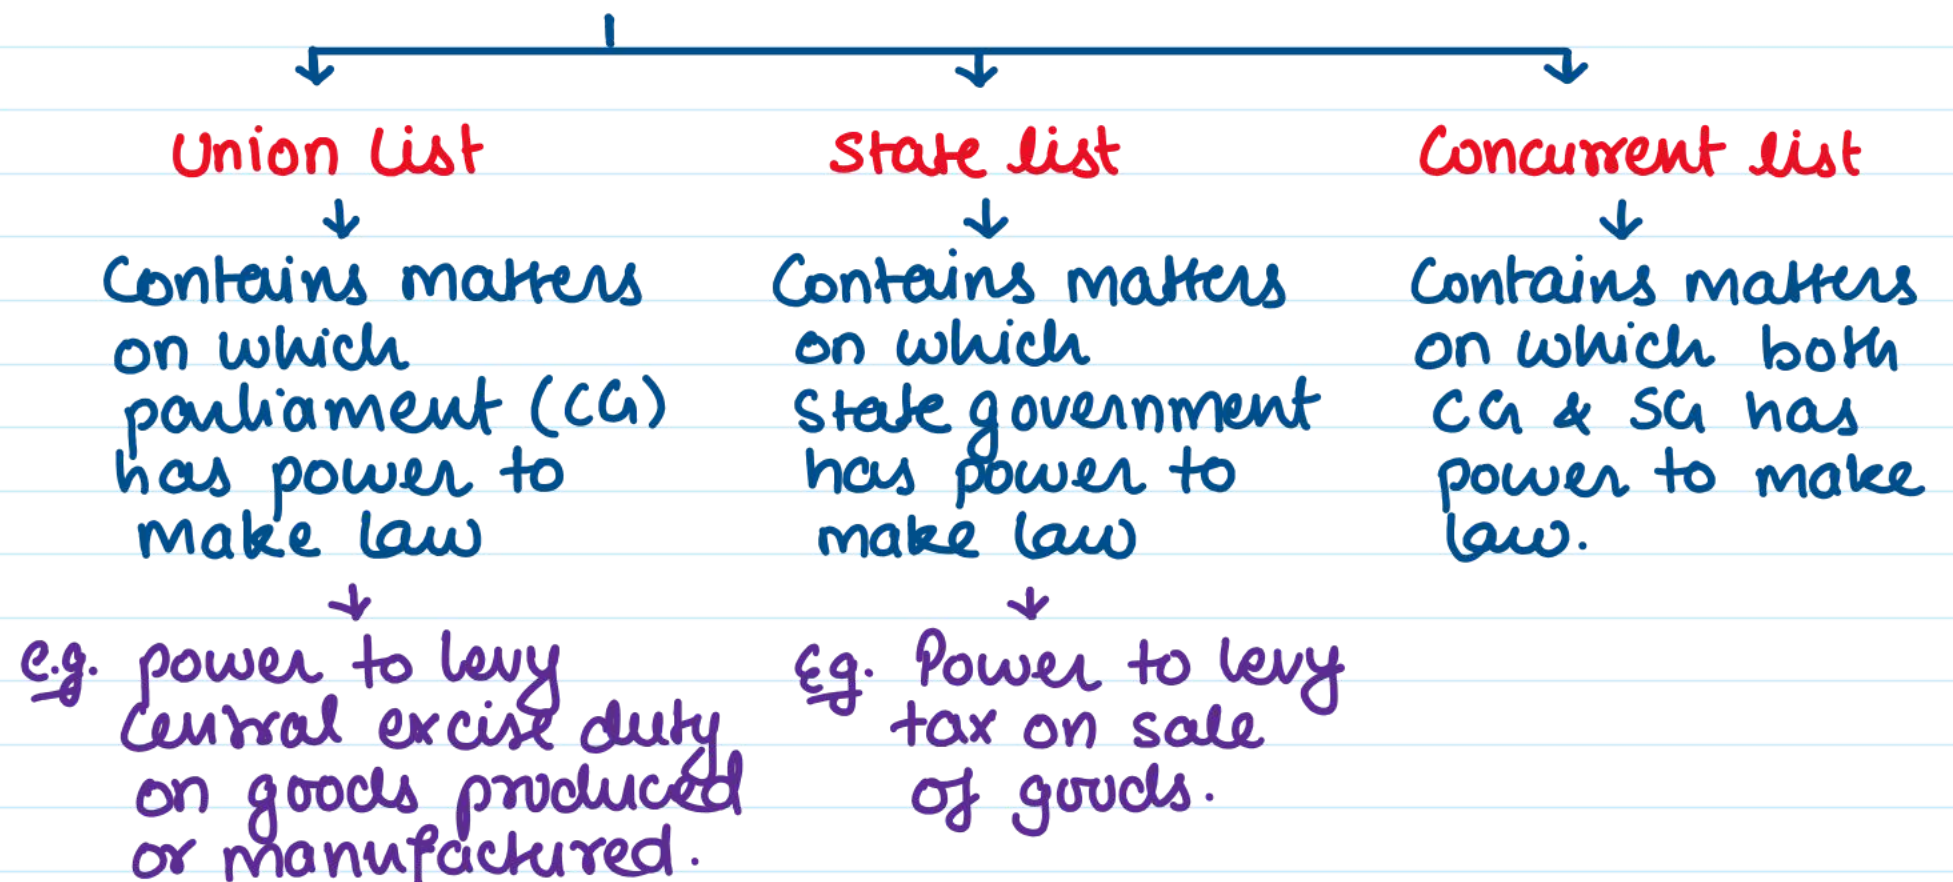 Union List
Contains matters
on which
parliament (CG)
has power to
make law
e.g. power to levy
central excise duty
on goods produced
or manufactured.
State list
Contains matters
on which
State government
has power to
make law
Eg. Power to levy
tax on sale
of goods.
Concurrent list
Contains matters
on which both
CG & SG has
power to make
law.